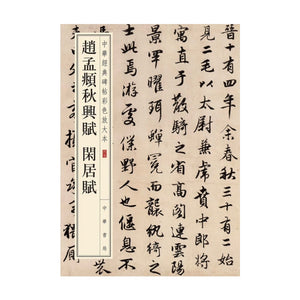 晉十有四年余春秋三十有二始
見二毛以太尉掾兼虎賁中郎將
寓直于散騎之省高閣連雲陽
景罕曜珥蟬冕而襲紈綺之士
此焉游處僕野人也偃息不
中華經典碑帖彩色放大本
趙孟頫秋興賦 閑居賦
中華書局